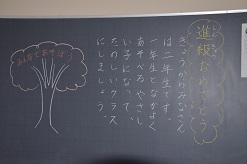 進級おめでとう
きょうからみなさん
は二年生です。
一年生となかよく
あそべるやさし
い子になって、
たのしいクラス
にしましょう。
みんなであそぼう